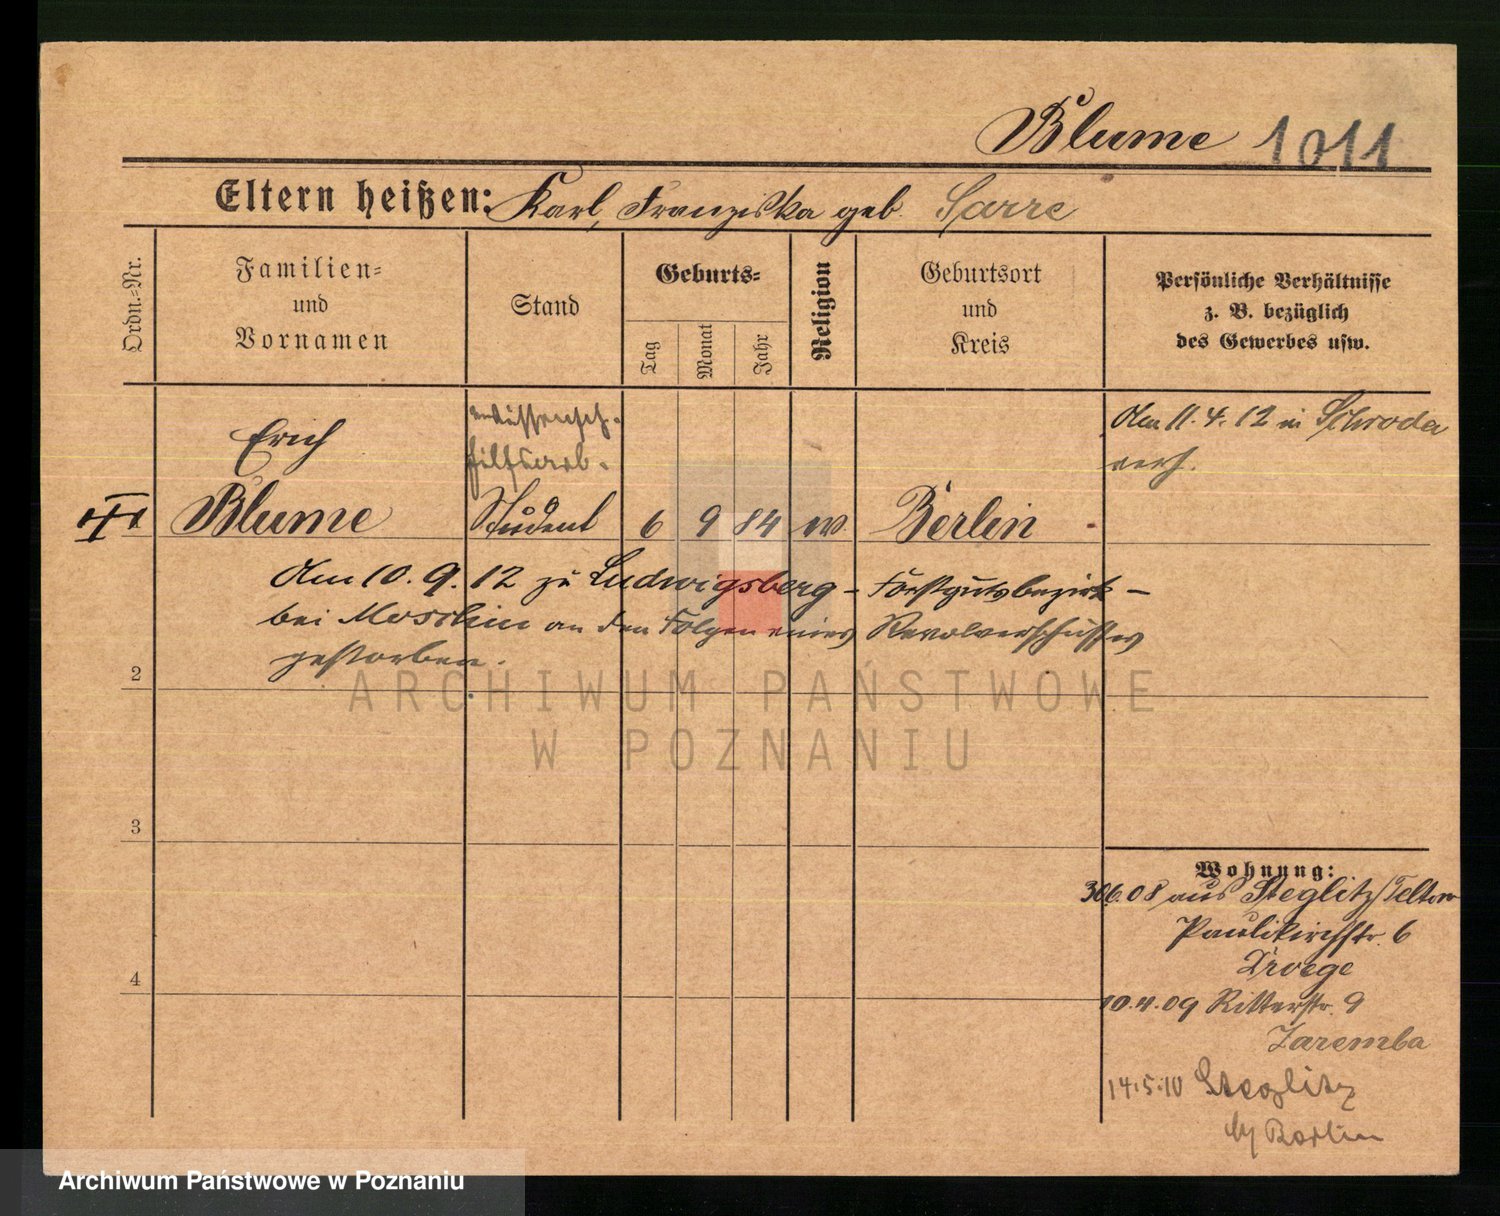 Blume 1011
Eltern heißen: Karl, Franziska geb. Sarre
Ordn.=Nr.
Familien=
und
Vornamen
Stand
Geburts=
Tag
Monat
Jahr
Religion
Geburtsort
und
Kreis
Persönliche Verhältnisse
z. B. bezüglich
des Gewerbes usw.
wissensch.
Hilfsarb.
Am 11.4.12 in Schroda
verh.
Erich
Blume Student 6 9 84 ev. Berlin
Am 10.9.12 zu Ludwigsberg - Forstgutsbezirk -
bei Moschin an den Folgen eines Revolverschusses
gestorben.
2
3
4
Wohnung:
30.6.08 aus Steglitz/Teltow
Paulikirchstr. 6
Droege
10.4.09 Ritterstr. 9
Zaremba
14.5.10 Steglitz
b/ Berlin
ARCHIWUM PAŃSTWOWE
W POZNANIU
Archiwum Państwowe w Poznaniu